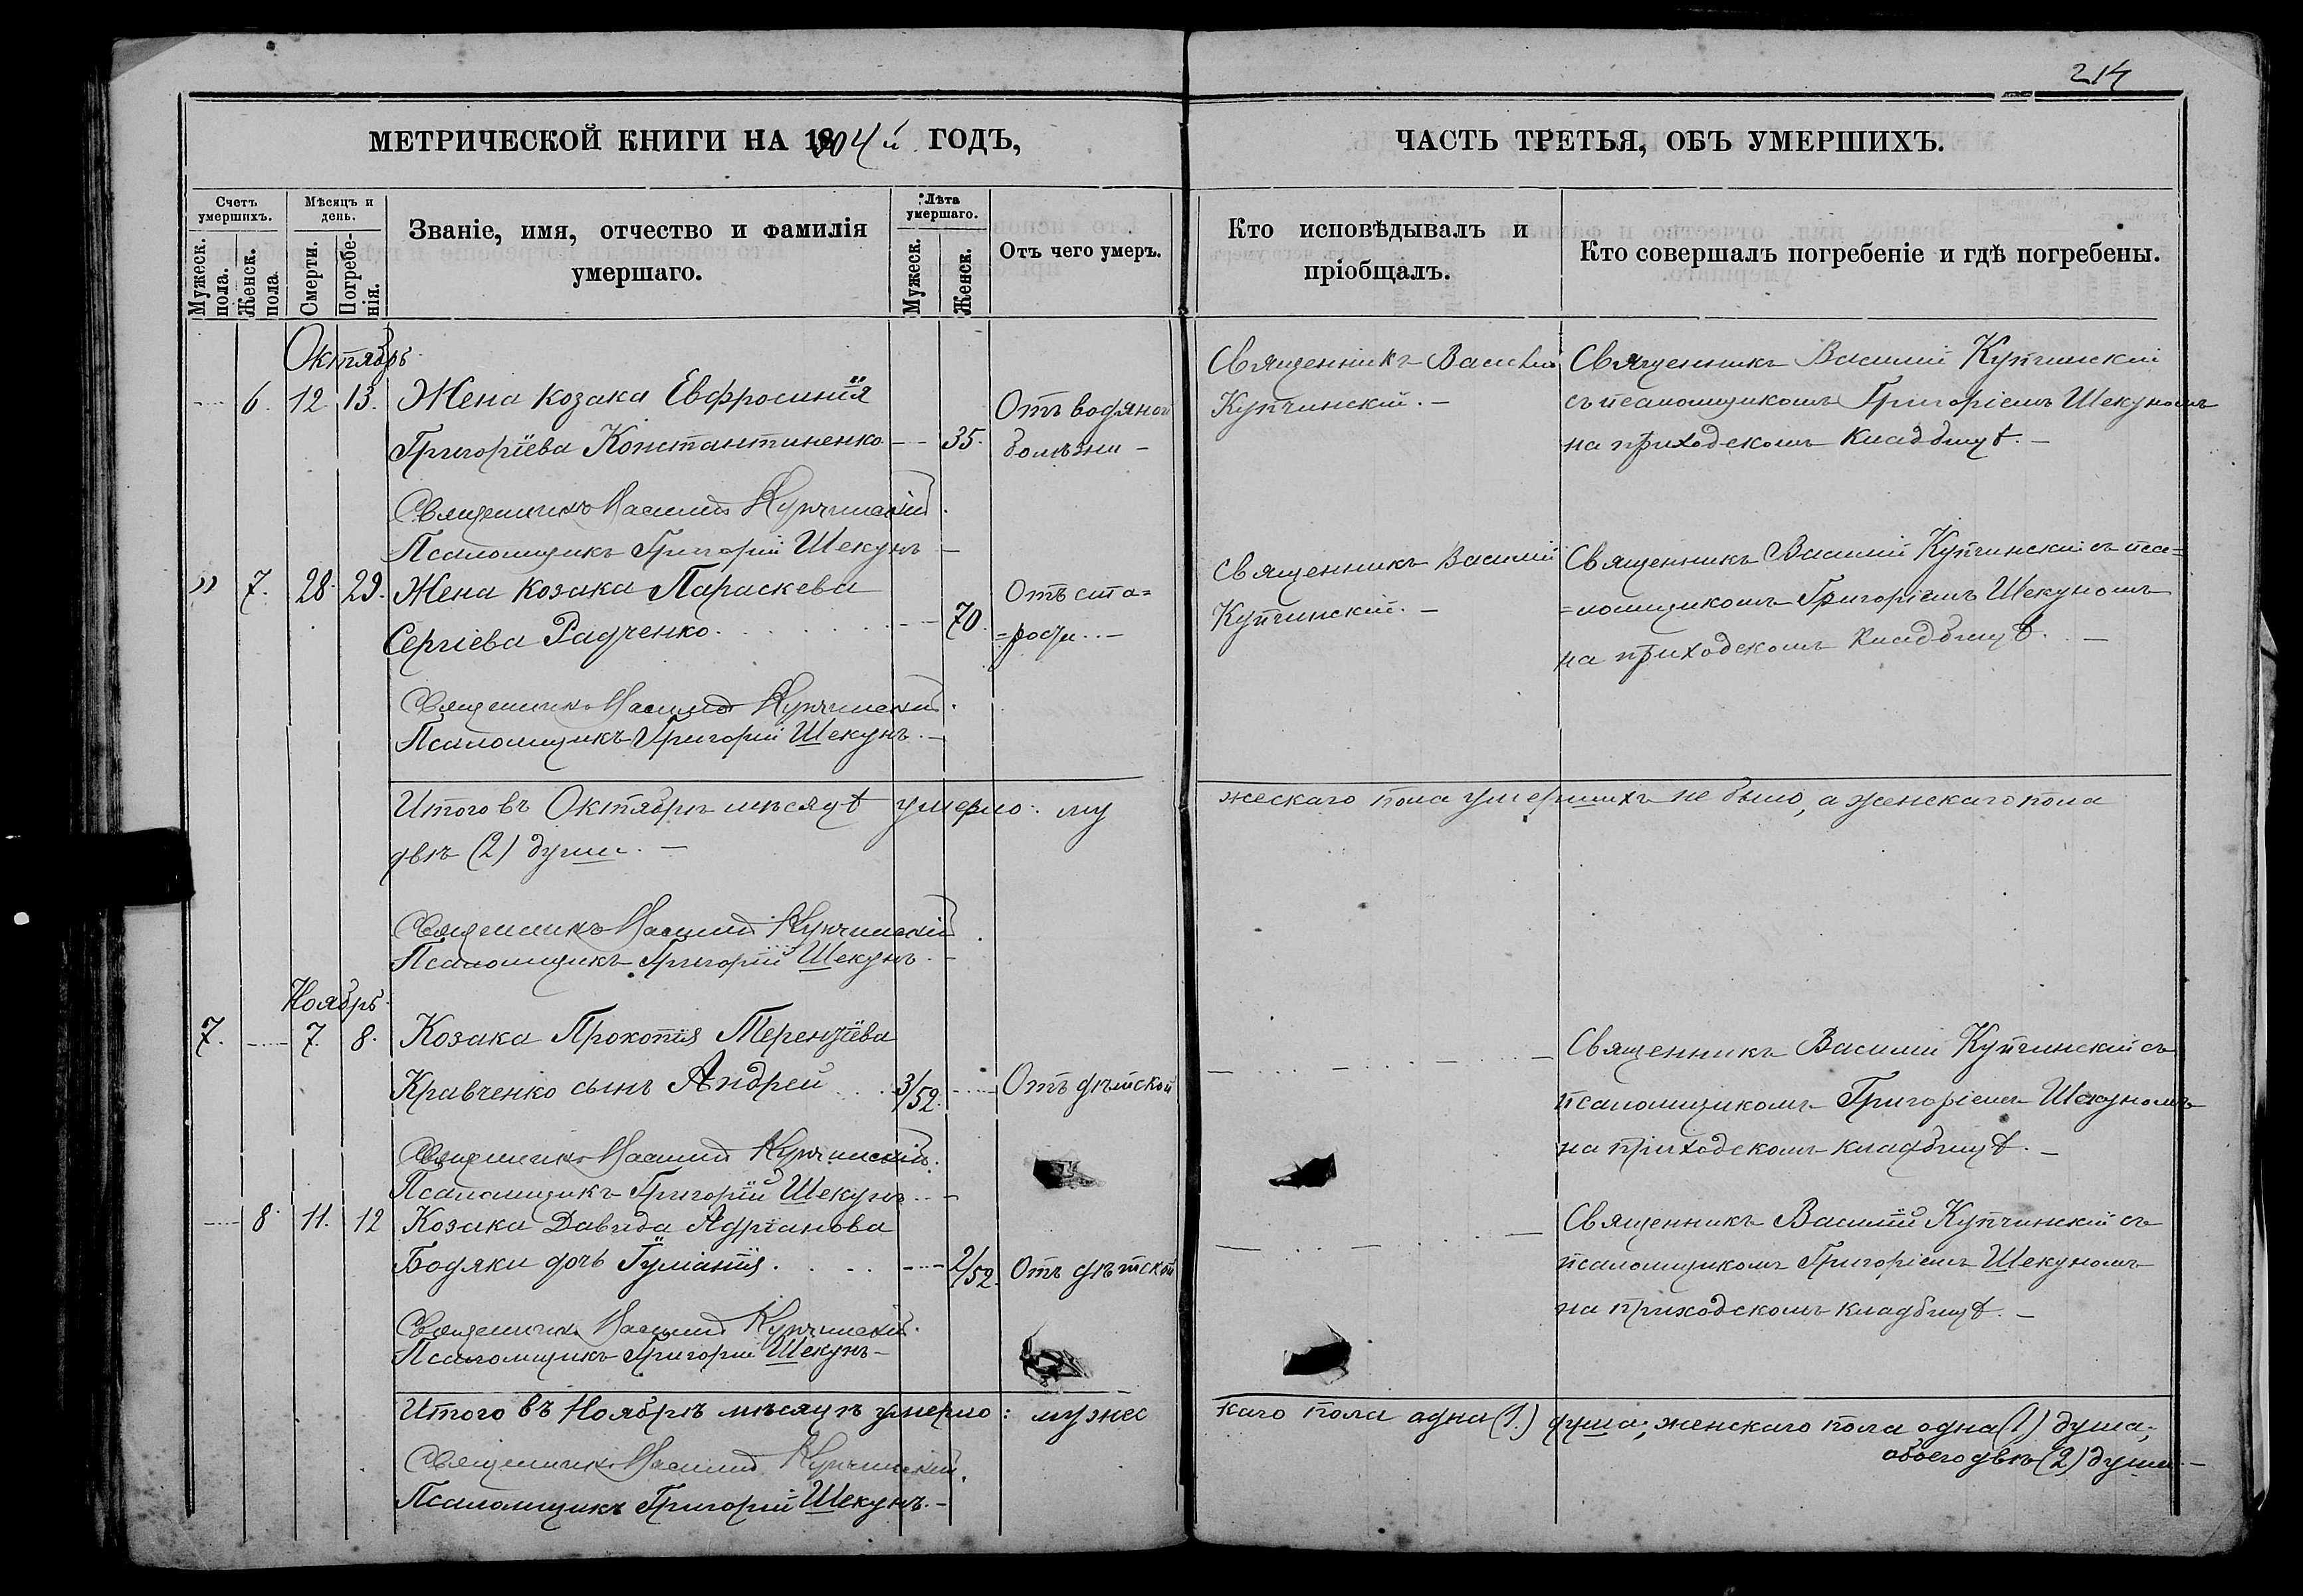 214
МЕТРИЧЕСКОЙ КНИГИ НА 1904й ГОДЪ,
ЧАСТЬ ТРЕТЬЯ, ОБЪ УМЕРШИХЪ.
Счетъ умершихъ.
Мужеск. пола.
Женск. пола
Мѣсяцъ и день.
Смерти.
Погребенія.
Званіе, имя, отчество и фамилія умершаго.
Лѣта умершаго.
Мужеск.
Женск.
Отъ чего умеръ.
Кто исповѣдывалъ и пріобщалъ.
Кто совершалъ погребеніе и гдѣ погребены.
Октябрь.
6. 12 13. Жена козака Евфросинія
Григоріева Константиненко 35.
Отъ водяной
болѣзни
Священникъ Василій
Купчинскій.
Священникъ Василій Купчинскій
съ псаломщикомъ Григоріемъ Шекуномъ
на приходскомъ кладбищѣ.
Священникъ Василій Купчинскій.
Псаломщикъ Григорій Шекунъ
" 7. 28. 29. Жена козака Параскева
Сергіева Радченко. 70.
Отъ ста=
=рости.
Священникъ Василій
Купчинскій.
Священникъ Василій Купчинскій съ пса=
=ломщикомъ Григоріемъ Шекуномъ
на приходскомъ кладбищѣ.
Священникъ Василій Купчинскій.
Псаломщикъ Григорій Шекунъ.
Итого въ Октябрѣ мѣсяцѣ умерло: мужескаго пола умершихъ не было, а женскаго пола
двѣ (2) души.
Священникъ Василій Купчинскій.
Псаломщикъ Григорій Шекунъ.
Ноябрь.
7. 7. 8. Козака Прокопія Терентіева
Кравченко сынъ Андрей 3/52. Отъ дѣтской
Священникъ Василій Купчинскій съ
псаломщикомъ Григоріемъ Шекуномъ
на приходскомъ кладбищѣ.
Священникъ Василій Купчинскій.
Псаломщикъ Григорій Шекунъ.
8. 11. 12 Козака Давида Адріанова
Бодяки дочь Іуліанія. 2/52. Отъ дѣтской
Священникъ Василій Купчинскій съ
псаломщикомъ Григоріемъ Шекуномъ
на приходскомъ кладбищѣ.
Священникъ Василій Купчинскій.
Псаломщикъ Григорій Шекунъ
Итого въ Ноябрѣ мѣсяцѣ умерло: мужескаго пола одна (1.) душа; женскаго пола одна (1) душа;
обоего двѣ (2) души.
Священникъ Василій Купчинскій.
Псаломщикъ Григорій Шекунъ.